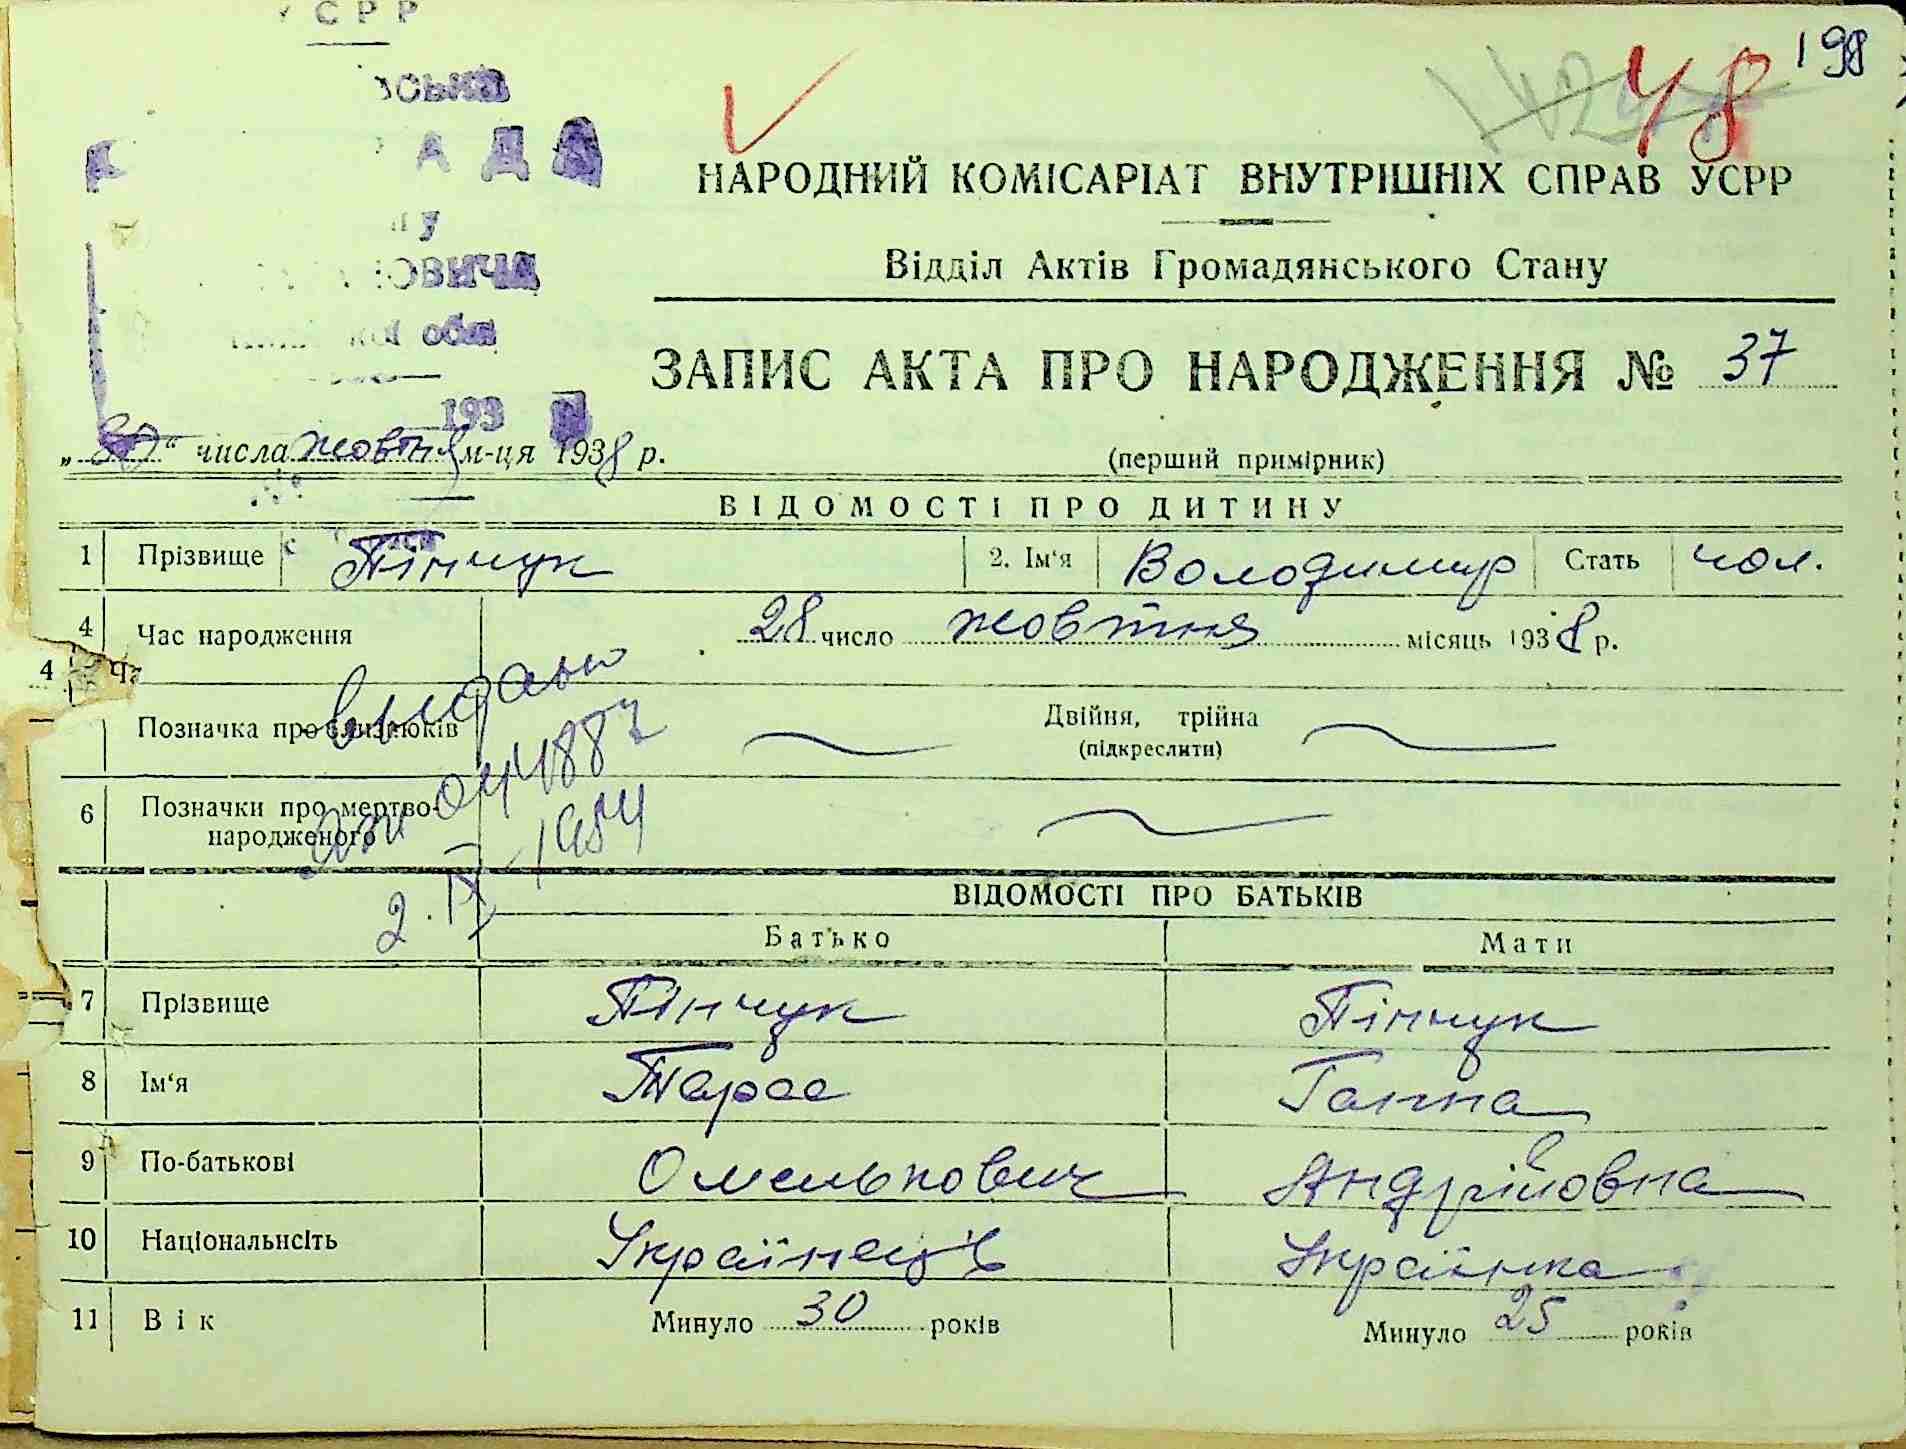 УСРР
198
48
РАДА
обл
193
НАРОДНИЙ КОМІСАРІАТ ВНУТРІШНІХ СПРАВ УСРР
Відділ Актів Громадянського Стану
ЗАПИС АКТА ПРО НАРОДЖЕННЯ № 37
„30“ числа жовтня м-ця 1938 р.
(перший примірник)
ВІДОМОСТІ ПРО ДИТИНУ
1 Прізвище Пінчук 2. Ім‘я Володимир Стать чол.
4 Час народження 28 число жовтня місяць 1938 р.
4 Ча
Позначка про близнюків Двійня, трійна
(підкреслити)
выдано
6 Позначки про мертво-
народженого
2.IX 1954
ВІДОМОСТІ ПРО БАТЬКІВ
Батько Мати
7 Прізвище Пінчук Пінчук
8 Ім‘я Тарас Ганна
9 По-батькові Омелькович Андрійовна
10 Національнсіть Українець Українка
11 Вік Минуло 30 років Минуло 25 років